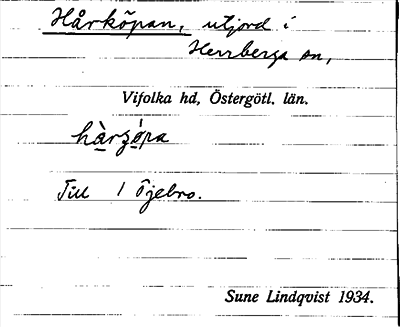 Hårköpan, utjord i
Herrberga sn,
Vifolka hd, Östergötl. län.
hàrʒó̱pa
Till 1 Öjebro.
Sune Lindqvist 1934.